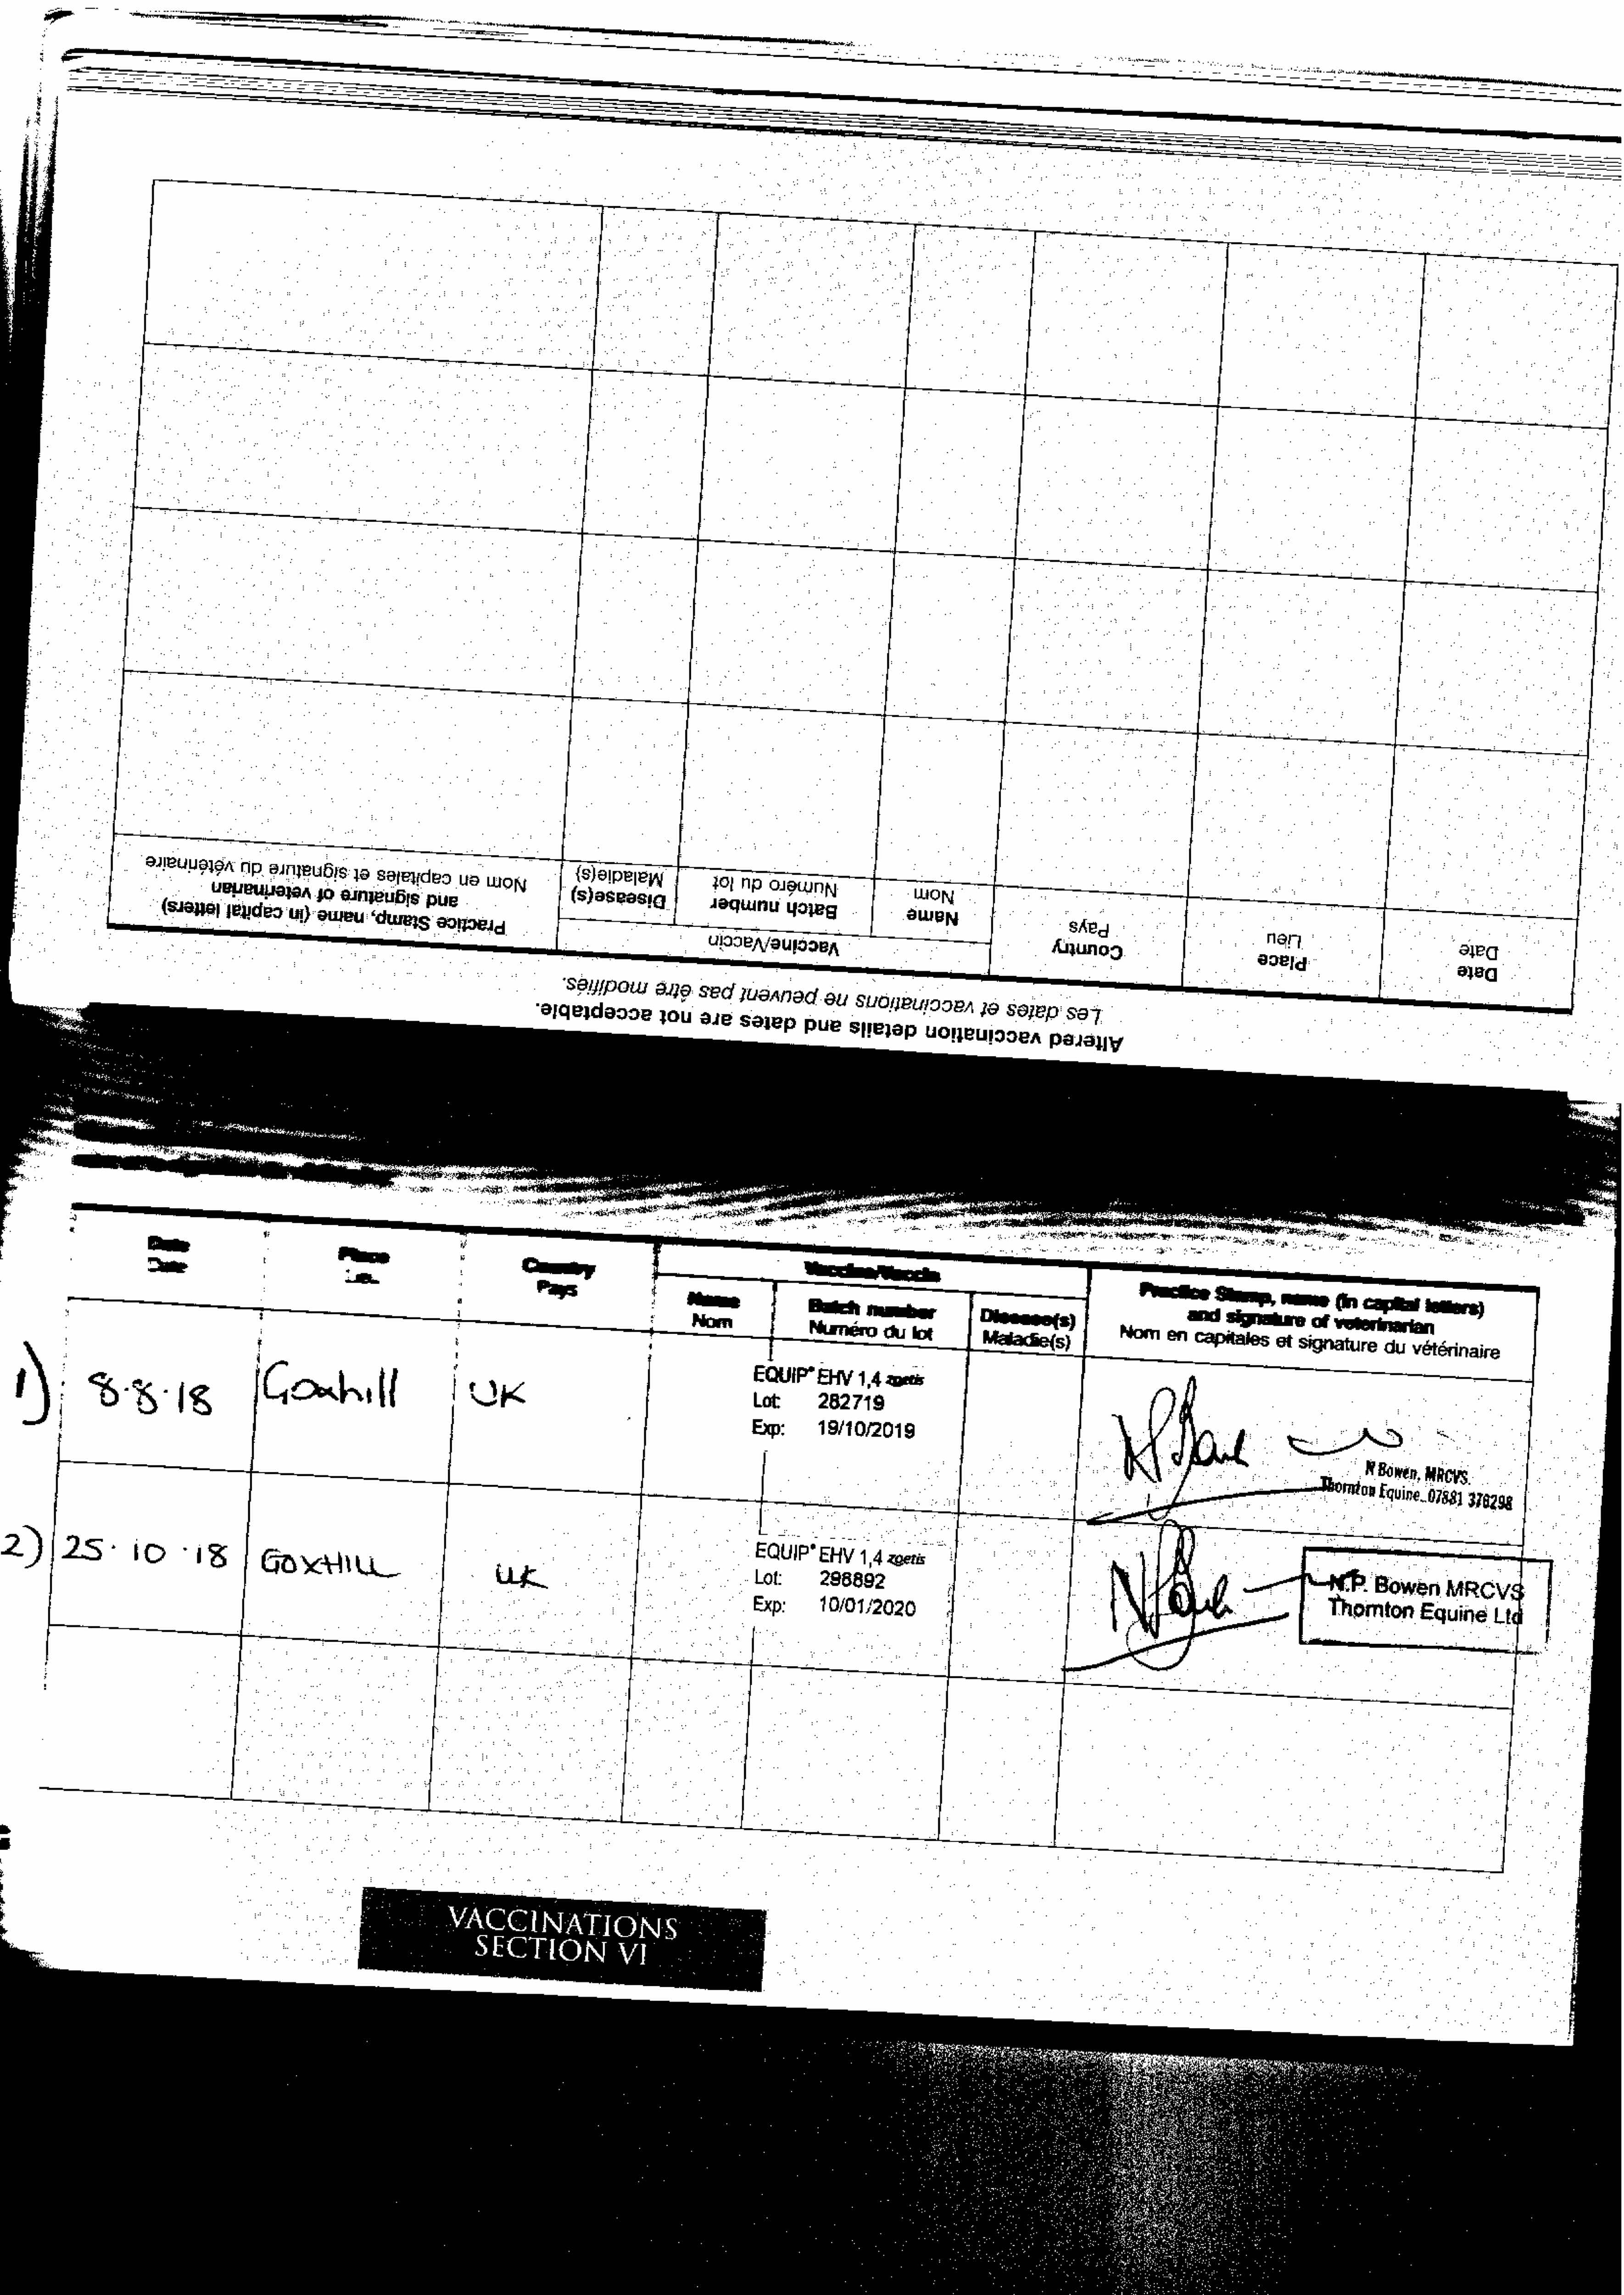 Altered vaccination details and dates are not acceptable.
Les dates et vaccinations ne peuvent pas être modifiés.
Date
Date
Place
Lieu
Country
Pays
Vaccine/Vaccin
Name
Nom
Batch number
Numéro du lot
Disease(s)
Maladie(s)
Practice Stamp, name (in capital letters)
and signature of veterinarian
Nom en capitales et signature du vétérinaire
Date
Date
Place
Country
Pays
Vaccine/Vaccin
Name
Nom
Batch number
Numéro du lot
Disease(s)
Maladie(s)
Practice Stamp, name (in capital letters)
and signature of veterinarian
Nom en capitales et signature du vétérinaire
1) 8.8.18 Goxhill UK
EQUIP® EHV 1,4 zoetis
Lot: 282719
Exp: 19/10/2019
N Bowen, MRCVS.
Thornton Equine 07881 376298
2) 25.10.18 GOXHILL UK
EQUIP® EHV 1,4 zoetis
Lot: 298892
Exp: 10/01/2020
N.P. Bowen MRCVS
Thornton Equine Ltd
VACCINATIONS
SECTION VI